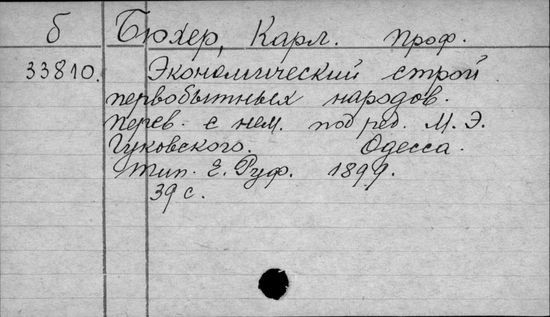 б Бюхер, Карл. проф.
33810. Экономический строй
первобытных народов.
перев. с нем. под ред. М. Э.
Гуковского. Одесса.
тип. Е. Руф. 1899.
39 с.